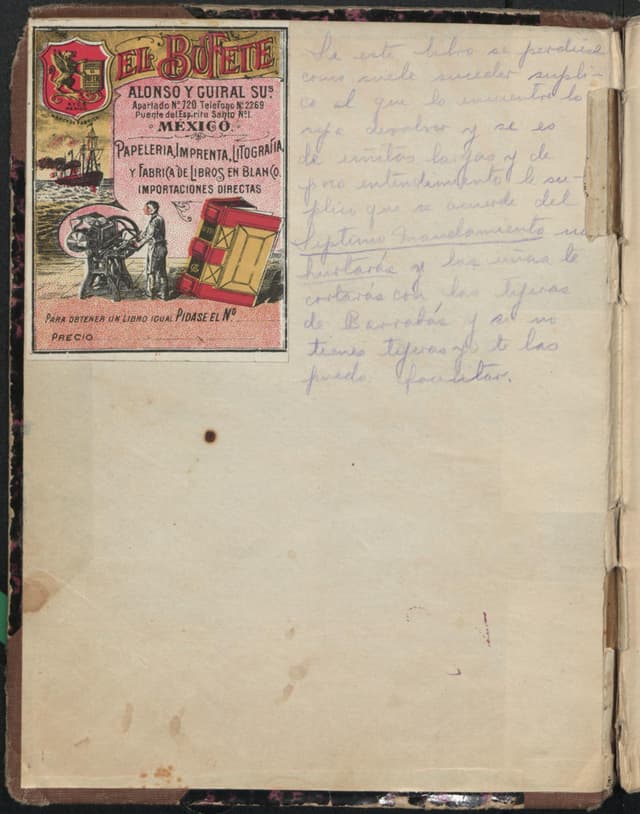 EL BUFETE
ALONSO Y GUIRAL SUS
Apartado No 720 Telefono No 2269
Puente del Espiritu Santo No 1.
MÉXICO.
PAPELERIA, IMPRENTA, LITOGRAFIA,
Y FABRICA DE LIBROS EN BLANCO.
IMPORTACIONES DIRECTAS
PARA OBTENER UN LIBRO IGUAL PIDASE EL No
PRECIO
Si este libro se perdiese
como suele suceder supli-
co al que lo encuentre lo
sepa devolver y si es
de uñitas largas y de
poco entendimiento le su-
plico que se acuerde del
Septimo Mandamiento no
hurtarás y las unas te
cortarás con las tijeras
de Barrabás y si no
tienes tijeras yo te las
puedo facilitar.